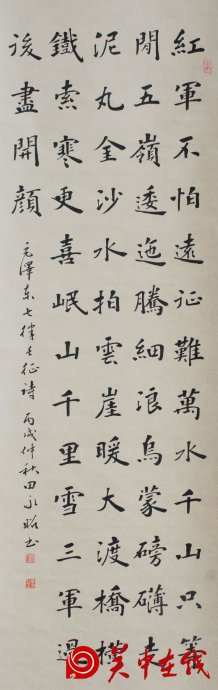 紅軍不怕遠征難萬水千山只等
閒五嶺逶迤騰細浪烏蒙磅礴走
泥丸金沙水拍雲崖暖大渡橋橫
鐵索寒更喜岷山千里雪三軍過
後盡開顏
毛澤东七律长征诗 丙戌仲秋田永昭书
吴中在线